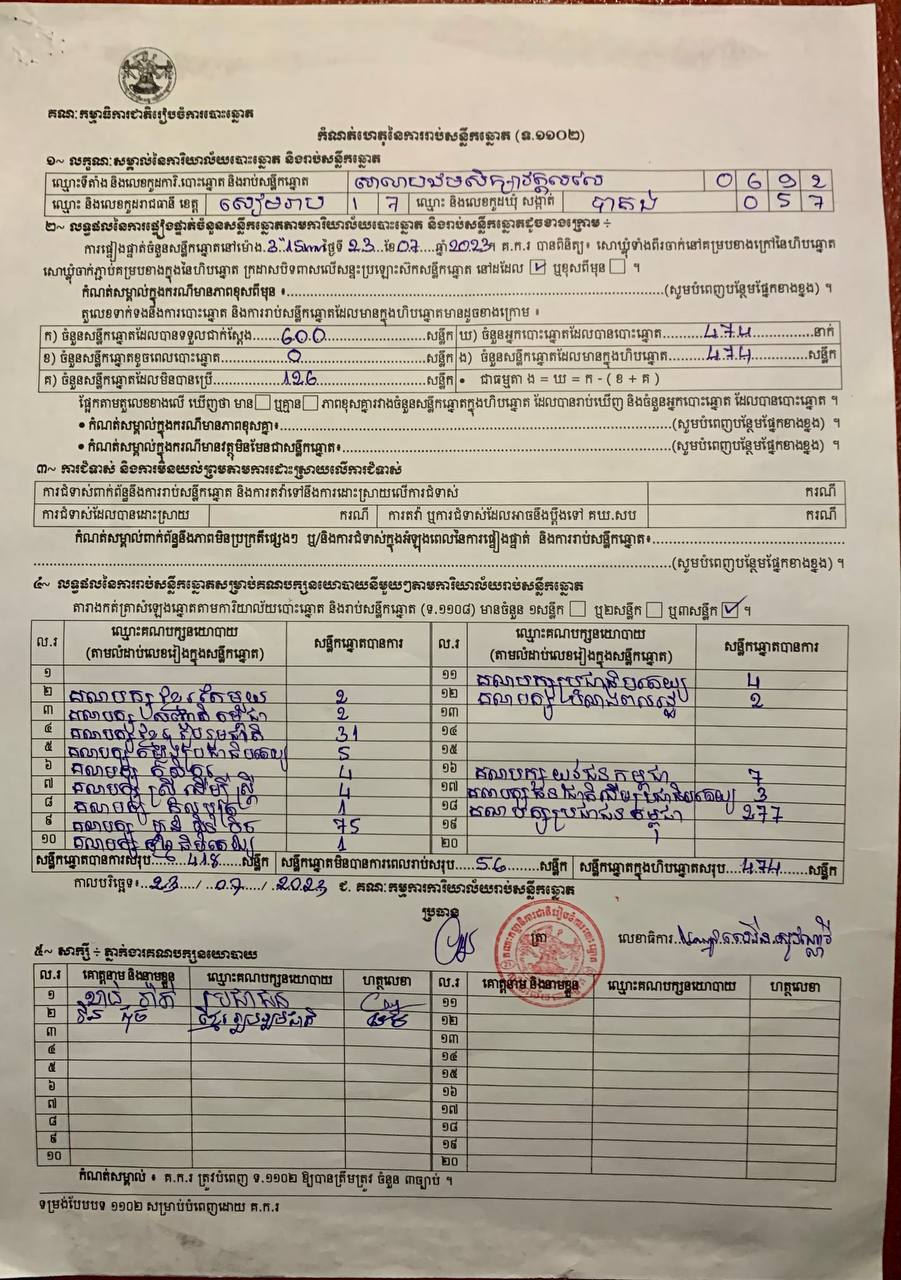 គណៈកម្មាធិការជាតិរៀបចំការបោះឆ្នោត
កំណត់ហេតុនៃការរាប់សន្លឹកឆ្នោត (ទ.១១០២)
១~ លក្ខណៈសម្គាល់នៃការិយាល័យបោះឆ្នោត និងរាប់សន្លឹកឆ្នោត
ឈ្មោះទីតាំង និងលេខកូដការិ.បោះឆ្នោត និងរាប់សន្លឹកឆ្នោត 0 6 9 2
ឈ្មោះ និងលេខកូដរាជធានី ខេត្ត សៀមរាប 1 7 ឈ្មោះ និងលេខកូដឃុំ សង្កាត់ បាគង់ 0 5 7
២~ លទ្ធផលនៃការផ្ទៀងផ្ទាត់ចំនួនសន្លឹកឆ្នោតតាមការិយាល័យបោះឆ្នោត និងរាប់សន្លឹកឆ្នោតដូចខាងក្រោម ÷
ការផ្ទៀងផ្ទាត់ចំនួនសន្លឹកឆ្នោតនៅម៉ោង 3:15mn ថ្ងៃទី 23 ខែ 07 ឆ្នាំ 2023 ។ គ.ក.រ បានពិនិត្យ៖ សោឃ្មុំទាំងពីរចាក់នៅគម្របខាងក្រៅនៃហិបឆ្នោត
សោឃ្មុំចាក់ភ្ជាប់គម្របខាងក្នុងនៃហិបឆ្នោត ក្រដាសបិទពាសលើសន្ទះប្រឡោះសិកសន្លឹកឆ្នោត នៅដដែល ☑ ឬខុសពីមុន ☐ ។
កំណត់សម្គាល់ក្នុងករណីមានភាពខុសពីមុន ៖ (សូមបំពេញបន្ថែមផ្នែកខាងខ្នង) ។
តួលេខទាក់ទងនឹងការបោះឆ្នោត និងការរាប់សន្លឹកឆ្នោតដែលមានក្នុងហិបឆ្នោតមានដូចខាងក្រោម ៖
ក) ចំនួនសន្លឹកឆ្នោតដែលបានទទួលជាក់ស្តែង 600 សន្លឹក ឃ) ចំនួនអ្នកបោះឆ្នោតដែលបានបោះឆ្នោត 474 នាក់
ខ) ចំនួនសន្លឹកឆ្នោតខូចពេលបោះឆ្នោត 0 សន្លឹក ង) ចំនួនសន្លឹកឆ្នោតដែលមានក្នុងហិបឆ្នោត 474 សន្លឹក
គ) ចំនួនសន្លឹកឆ្នោតដែលមិនបានប្រើ 126 សន្លឹក • ជាធម្មតា ង = ឃ = ក - ( ខ + គ )
ផ្អែកតាមតួលេខខាងលើ ឃើញថា មាន ☐ ឬគ្មាន ☐ ភាពខុសគ្នារវាងចំនួនសន្លឹកឆ្នោតក្នុងហិបឆ្នោត ដែលបានរាប់ឃើញ និងចំនួនអ្នកបោះឆ្នោត ដែលបានបោះឆ្នោត ។
• កំណត់សម្គាល់ក្នុងករណីមានភាពខុសគ្នា៖ (សូមបំពេញបន្ថែមផ្នែកខាងខ្នង) ។
• កំណត់សម្គាល់ក្នុងករណីមានវត្ថុមិនមែនជាសន្លឹកឆ្នោត៖ (សូមបំពេញបន្ថែមផ្នែកខាងខ្នង) ។
៣~ ការជំទាស់ និងការមិនយល់ព្រមតាមការដោះស្រាយលើការជំទាស់
ការជំទាស់ពាក់ព័ន្ធនឹងការរាប់សន្លឹកឆ្នោត និងការតវ៉ាទៅនឹងការដោះស្រាយលើការជំទាស់ ករណី
ការជំទាស់ដែលបានដោះស្រាយ ករណី ការតវ៉ា ឬការជំទាស់ដែលអាចនឹងប្តឹងទៅ គឃ.សប ករណី
កំណត់សម្គាល់ពាក់ព័ន្ធនឹងភាពមិនប្រក្រតីផ្សេងៗ ឬ/និងការជំទាស់ក្នុងអំឡុងពេលនៃការផ្ទៀងផ្ទាត់ និងការរាប់សន្លឹកឆ្នោត៖
(សូមបំពេញបន្ថែមផ្នែកខាងខ្នង) ។
៤~ លទ្ធផលនៃការរាប់សន្លឹកឆ្នោតសម្រាប់គណបក្សនយោបាយនីមួយៗតាមការិយាល័យរាប់សន្លឹកឆ្នោត
តារាងកត់ត្រាសំឡេងឆ្នោតតាមការិយាល័យបោះឆ្នោត និងរាប់សន្លឹកឆ្នោត (ទ.១១០៨) មានចំនួន ១សន្លឹក ☐ ឬ២សន្លឹក ☐ ឬ៣សន្លឹក ☑ ។
ល.រ ឈ្មោះគណបក្សនយោបាយ (តាមលំដាប់លេខរៀងក្នុងសន្លឹកឆ្នោត) សន្លឹកឆ្នោតបានការ ល.រ ឈ្មោះគណបក្សនយោបាយ (តាមលំដាប់លេខរៀងក្នុងសន្លឹកឆ្នោត) សន្លឹកឆ្នោតបានការ
១ ១១ គណបក្សប្រជាធិបតេយ្យ 4
២ គណបក្ស ខ្មែរតែមួយ 2 ១២ គណបក្ស កំលាំងពលរដ្ឋ 2
៣ គណបក្ស សញ្ជាតិកម្ពុជា 2 ១៣
៤ គណបក្ស ខ្មែររួបរួមជាតិ 31 ១៤
៥ គណបក្ស សំបុកឃ្មុំ 5 ១៥
៦ គណបក្ស កសិករ 4 ១៦ គណបក្ស យុវជនកម្ពុជា 7
៧ គណបក្ស ស្រ្តីដើម្បីស្រ្តី 4 ១៧ គណបក្សជនជាតិដើមប្រជាធិបតេយ្យ 3
៨ គណបក្ស 1 ១៨ គណបក្សប្រជាជនកម្ពុជា 277
៩ គណបក្ស ហ្វ៊ុនស៊ិនប៉ិច 75 ១៩
១០ គណបក្ស 1 ២០
សន្លឹកឆ្នោតបានការសរុប 418 សន្លឹក សន្លឹកឆ្នោតមិនបានការពេលរាប់សរុប 56 សន្លឹក សន្លឹកឆ្នោតក្នុងហិបឆ្នោតសរុប 474 សន្លឹក
កាលបរិច្ឆេទ៖ 23 / 07 / 2023 ជ. គណៈកម្មការការិយាល័យរាប់សន្លឹកឆ្នោត
ប្រធាន ត្រា លេខាធិការ
៥~ សាក្សី ÷ ភ្នាក់ងារគណបក្សនយោបាយ
ល.រ គោត្តនាម និងនាមខ្លួន ឈ្មោះគណបក្សនយោបាយ ហត្ថលេខា ល.រ គោត្តនាម និងនាមខ្លួន ឈ្មោះគណបក្សនយោបាយ ហត្ថលេខា
១ ប្រជាជន ១១
២ ខ្មែររួបរួមជាតិ ១២
៣ ១៣
៤ ១៤
៥ ១៥
៦ ១៦
៧ ១៧
៨ ១៨
៩ ១៩
១០ ២០
កំណត់សម្គាល់ ៖ គ.ក.រ ត្រូវបំពេញ ទ.១១០២ ឱ្យបានត្រឹមត្រូវ ចំនួន ៣ច្បាប់ ។
ទម្រង់បែបបទ ១១០២ សម្រាប់បំពេញដោយ គ.ក.រ